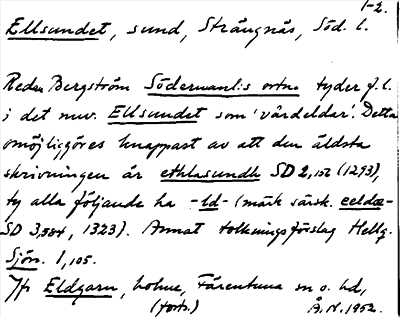 1-2.
Ellsundet, sund, Strängnäs, Söd. l.
Redan Bergström Södermanl:s ortn. tyder f.l.
i det nuv. Ellsundet som 'vårdeldar'. Detta
omöjliggöres knappast av att den äldsta
skrivningen är ethlasundh SD 2,152 (1293),
ty alla följande ha -ld- (märk särsk. eeldæ-
SD 3,584, 1323). Annat tolkningsförslag Hellq.
Sjön. 1,105.
Jfr Eldgarn, holme, Färentuna sn o. hd,
(forts.) Å.N. 1952.